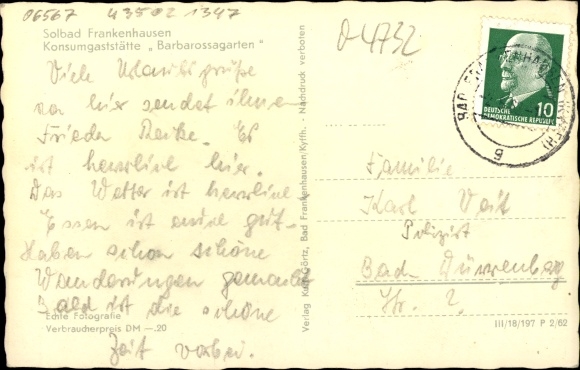 06567 43502 1347
Solbad Frankenhausen
Konsumgaststätte „Barbarossagarten"
Viele Urlaubsgrüße
von hier sendet ihnen
Frieda Es
ist herrlich hier.
Das Wetter ist herrlich
Essen ist gut.
Haben schon schöne
Wanderungen gemacht
Bald ist die schöne
Zeit vorbei.
Echte Fotografie
Verbraucherpreis DM —.20
Verlag Görtz, Bad Frankenhausen/Kyffh. - Nachdruck verboten
O-4732
DEUTSCHE
DEMOKRATISCHE REPUBLIK
10
BAD
g
Familie
Karl Veit
Polizist
Bad
Str. 2
III/18/197 P 2/62